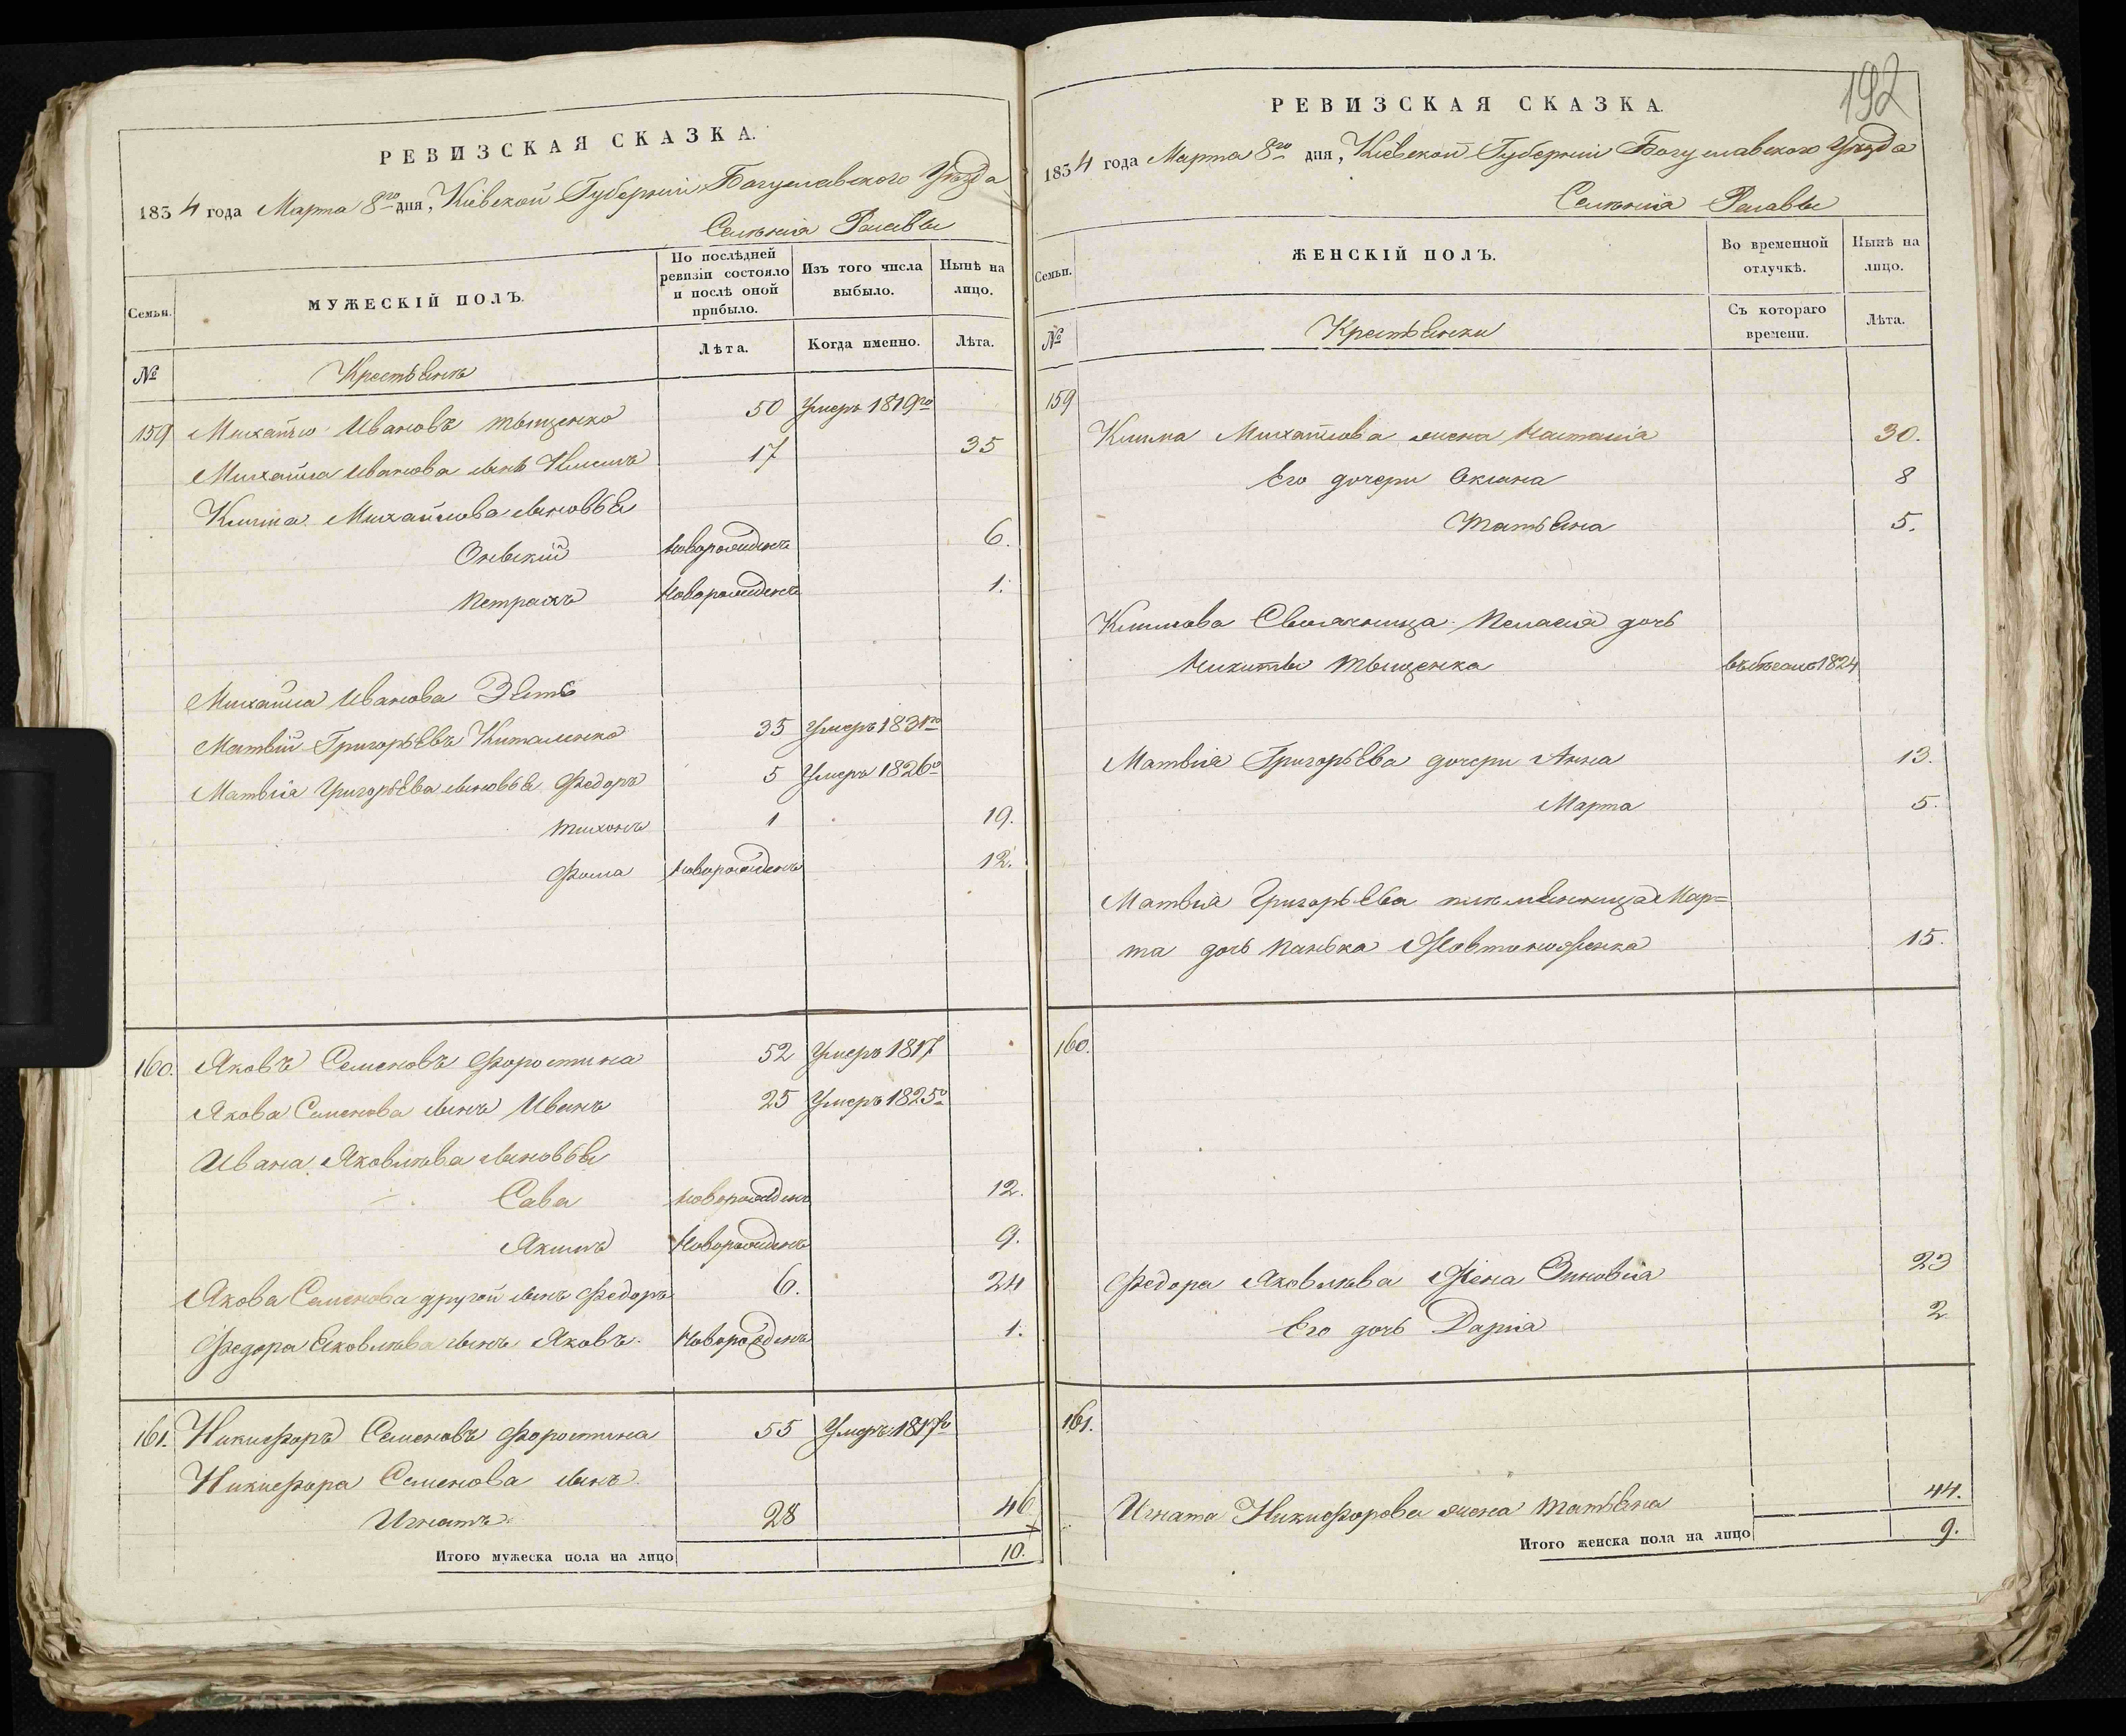 РЕВИЗСКАЯ СКАЗКА.
1834 года Марта 8го дня, Кіевской Губерніи Богуславского Уезда
Селенія Расавы
Семьи.
МУЖЕСКІЙ ПОЛЪ.
По послѣдней ревизіи состояло и послѣ оной прибыло.
Изъ того числа выбыло.
Нынѣ на лицо.
№
Крестьянъ
Лѣта.
Когда именно.
Лѣта.
159 Михайло Ивановъ Тыщенко 50 Умеръ 1819го
Михайла Иванова сынъ Климъ 17 35
Клима Михайлова сыновья
новорожденъ 6.
Петрахъ Новорожденъ 1.
Михайла Иванова Зять
Матвій Григорьевъ 35 Умеръ 1831го
Матвія Григорьева сыновья Федоръ 5 Умеръ 1826го
Тихонъ 1 19.
Фома новорожденъ 12.
160. Яковъ Семеновъ Форостина 52 Умеръ 1817
Якова Семенова сынъ Иванъ 25 Умеръ 1825го
Ивана Яковлева сыновья
Сава новорожденъ 12.
Якимъ Новорожденъ 9.
Якова Семенова другой сынъ Федоръ 6. 24
Федора Яковлева сынъ Яковъ. Новорожденъ 1.
161. Никифоръ Семеновъ Форостина 55 Умеръ 1817го
Никифора Семенова сынъ
Игнатъ 28 46
Итого мужеска пола на лицо 10.
192
РЕВИЗСКАЯ СКАЗКА.
1834 года Марта 8го дня, Кіевской Губерніи Богуславского Уезда
Селенія Расавы
Семьи.
ЖЕНСКІЙ ПОЛЪ.
Во временной отлучкѣ.
Нынѣ на лицо.
№
Крестьянки
Съ котораго времени.
Лѣта.
159
Клима Михайлова жена Настасія 30.
Его дочери Оксана 8
Татьяна 5.
Климова Своячница Пелагія дочь
Никиты Тыщенка 1824
Матвія Григорьева дочери Анна 13.
Марта 5.
Матвія Григорьева племянница Мар=
та дочь Панька 15.
160.
Федора Яковлева Жена Зиновія 23
Его дочь Дарія 2
161.
Игната Никифорова жена Татьяна 44.
Итого женска пола на лицо 9.